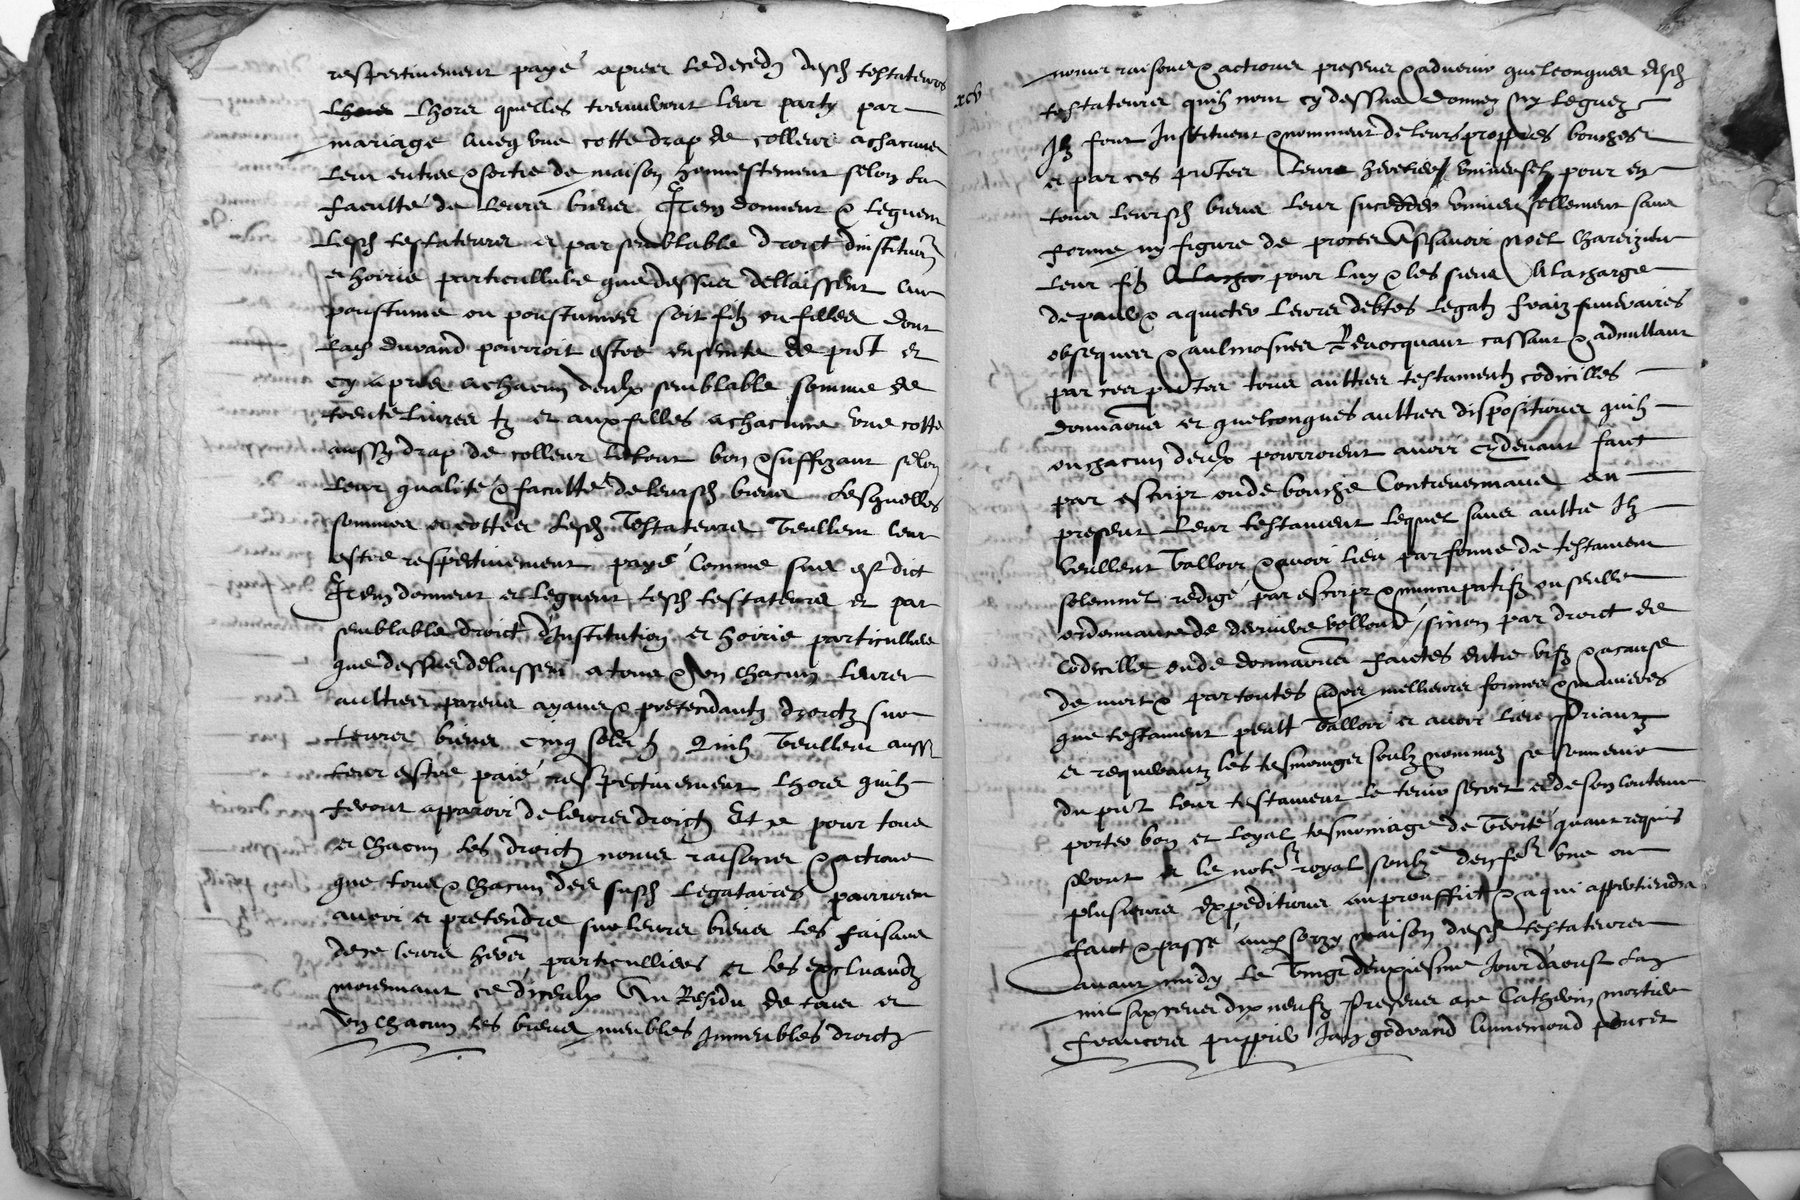 respectivement payé apres le decedz desd testateurs
lhors lhors quelles treuveront leur party par
mariage aveq une cotte drap de colleur a chacune
leur entree & sortie de maison honnestement selon la
faculté de leurs biens Item donnent & leguent
lesd testateurs et par semblable droict dinstituon
et hoirie particulliere que dessus dellaissent au
poustume ou poustumes soit filz ou filles dont
lad durand pourroit estre enseinte de pnt et
cy apres a chacun deulx semblable somme de
trente livres tz et aux filles a chacune une cotte
aussy drap de colleur le tout bon & suffizant selon
leur qualité & faculté de leursd biens Lesquelles
sommes et cottes lesd Testateurs veullent leur
estre respectivement payé comme sus est dict
Item donnent et leguent lesd testateurs et par
semblable droict dinstitution et hoirie particulliere
que dessus delaissent a tous & un chacun leurs
aultres parens ayans & pretendantz droictz sur
leurs biens cinq solz tz Quilz veullent aussi
leur estre paié respectivement lhors quilz
feront apparoir de leurs droictz Et ce pour tous
et chacun les droictz noms raisons & actions
que tous & chacun des susd legataires pourroient
avoir et pretendre sur leurs biens les faisans
de ce leurs heres particulliers et les excluandz
moiennant ce diceulx Au Residu de tous et
un chacun les biens meubles immeubles droictz
xcv
noms raisons & actions presens & advenir quelconques desd
testateurs quilz nont cy dessus donnez ny leguez
Ilz font instituent & nomment de leurs proppres bouches
et par ces pntes leurs heretier universelz pour en
tous leursd biens leur succedder universellement sans
forme ny figure de proces Assavoir noel
leur filz pour luy & les siens A la charge
de paier & aquicter leurs debtes legatz fraiz funeraires
obseques & aulmosnes Revocquant cassant & adnullant
par ces pntes tous aultres testamentz codicilles
donnaons et quelconques aultres dispositions quilz
ou chacun deulx pourroient avoir cy devant faict
par escript ou de bouche Contrevenans au
present leur testament lequel sans aultre Ilz
veullent valloir & avoir lieu par forme de testament
solemnel redigé par escript & nuncupatifz ou seulle
ordonnance de derniere vollonté sinon par droict de
Codicille ou de donnaons faictes entre vifz & a cause
de mort & par toutes aultres melheures formes & manieres
que testament peult valloir et avoir lieu Priantz
et requerantz les tesmoingz soubz nommez se souvenir
du pnt leur testament le tenir secret et de son contenu
porter bon et loyal tesmoniage de verité quant requis
seront et le notere royal soubzne den fere une ou
plusieurs expeditions au prouffict & a qui appertiendra
faict & passé maison desd testateurs
avant midy le vingt deuxiesme jour daoust lan
mil six cens dix neufz Presens Catherin mortier
francois Jan godrand Annemond poncet